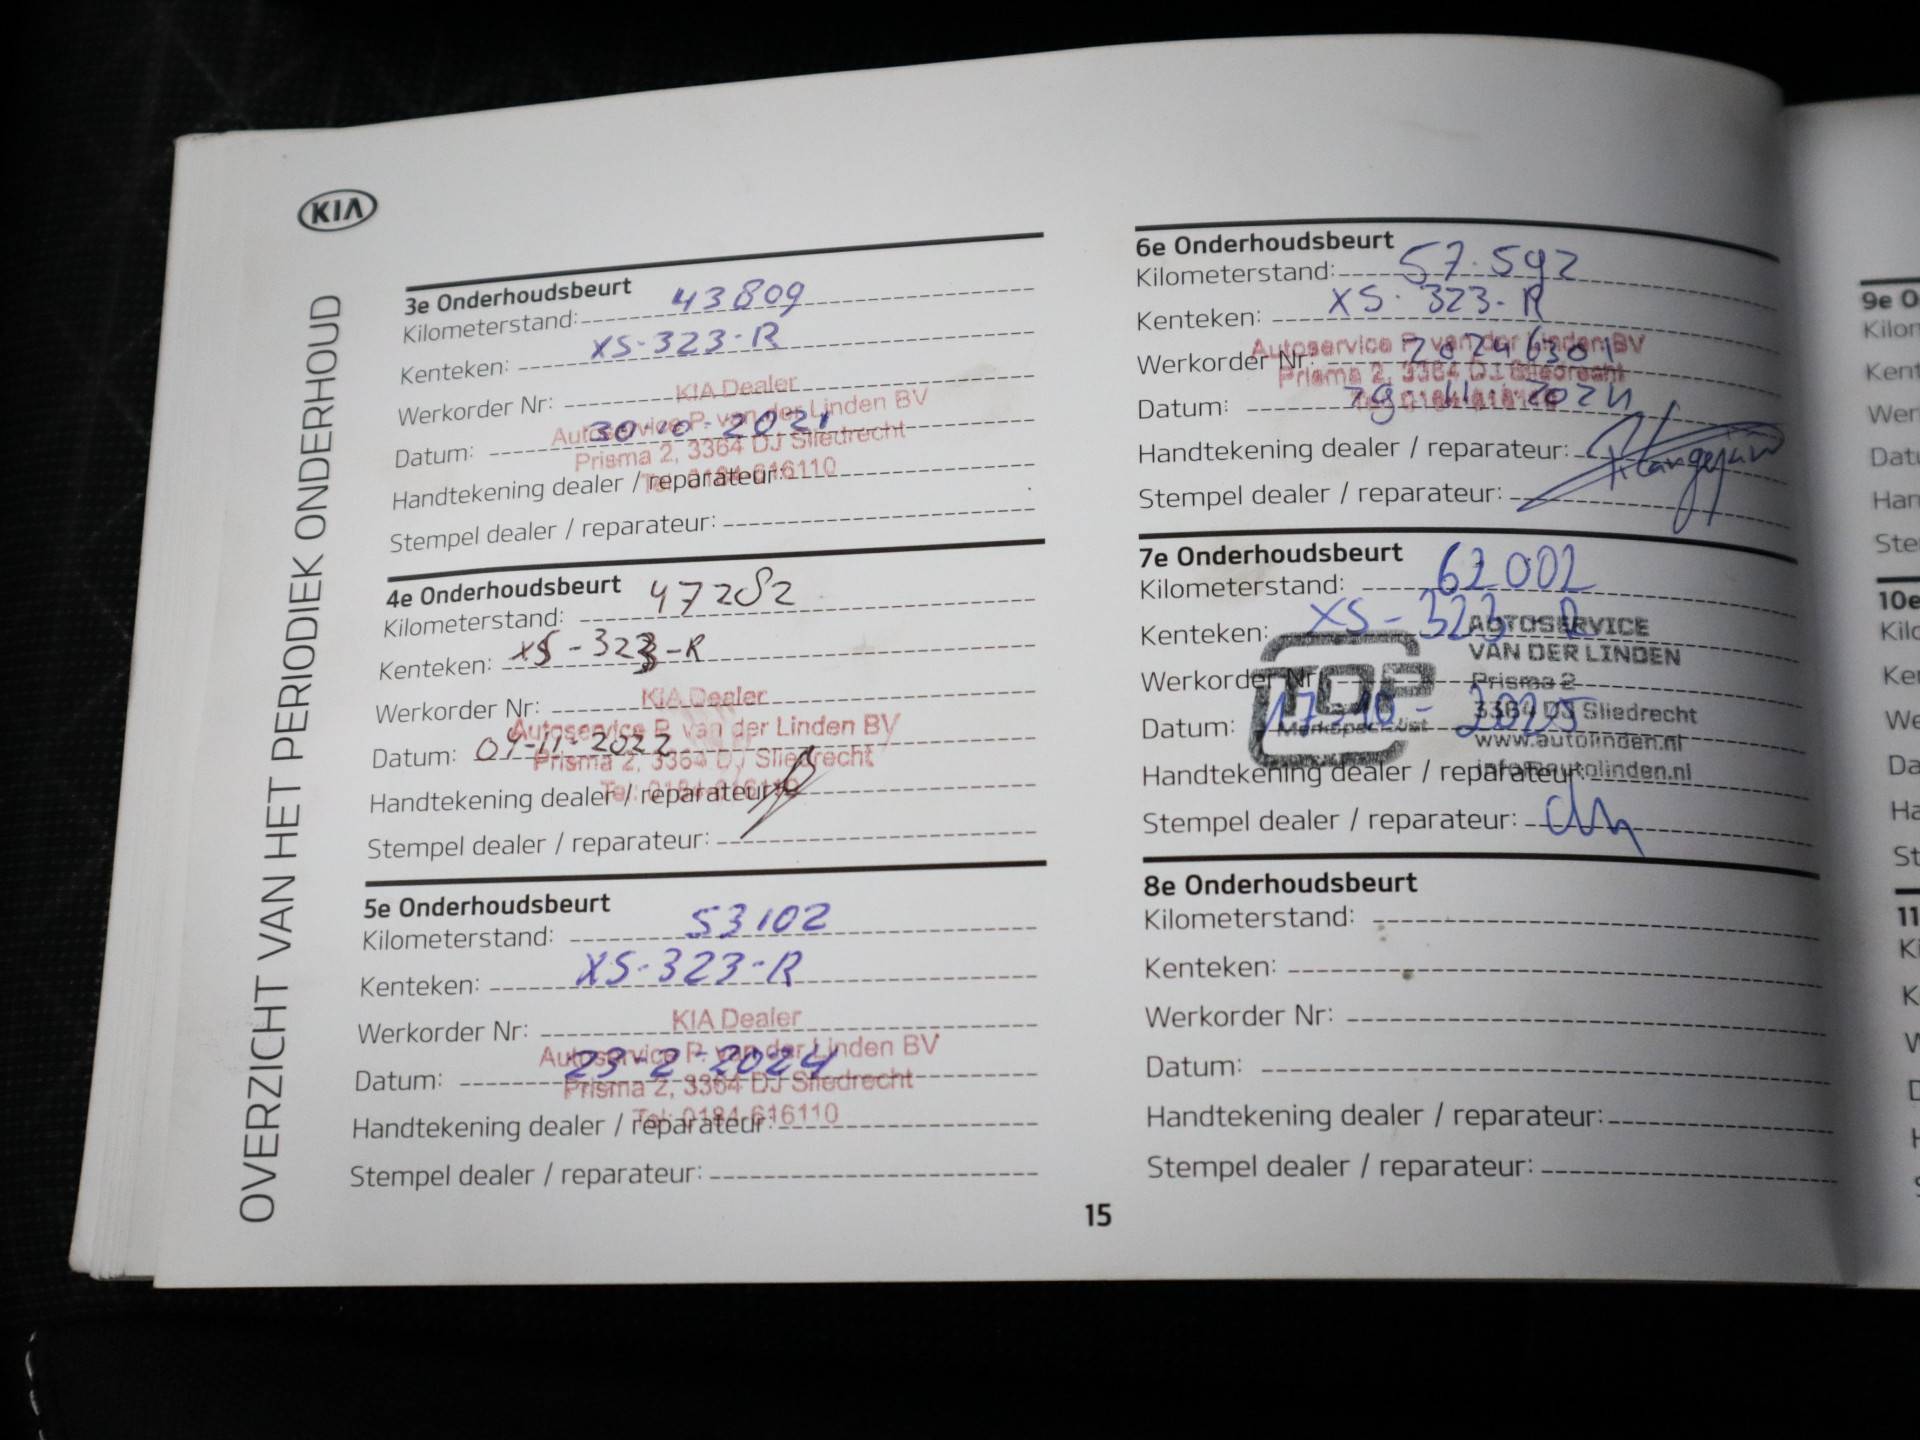 KIA
OVERZICHT VAN HET PERIODIEK ONDERHOUD
3e Onderhoudsbeurt
Kilometerstand: 43809
Kenteken: XS-323-R
Werkorder Nr:
KIA Dealer
Autoservice P. van der Linden BV
Datum: 30-10-2021
Prisma 2, 3364 DJ Sliedrecht
Tel: 0184-616110
Handtekening dealer / reparateur:
Stempel dealer / reparateur:
4e Onderhoudsbeurt
Kilometerstand: 47282
Kenteken: XS-323-R
Werkorder Nr:
KIA Dealer
Autoservice P. van der Linden BV
Datum: 09-11-2022
Prisma 2, 3364 DJ Sliedrecht
Tel: 0184-616110
Handtekening dealer / reparateur:
Stempel dealer / reparateur:
5e Onderhoudsbeurt
Kilometerstand: 53102
Kenteken: XS-323-R
Werkorder Nr:
KIA Dealer
Autoservice P. van der Linden BV
Datum: 23-2-2024
Prisma 2, 3364 DJ Sliedrecht
Tel: 0184-616110
Handtekening dealer / reparateur:
Stempel dealer / reparateur:
6e Onderhoudsbeurt
Kilometerstand: 57.592
Kenteken: XS-323-R
Autoservice P. van der Linden BV
Werkorder Nr: 20246301
Prisma 2, 3364 DJ Sliedrecht
Datum:
Handtekening dealer / reparateur:
Stempel dealer / reparateur:
7e Onderhoudsbeurt
Kilometerstand: 62002
Kenteken: XS-323 R
AUTOSERVICE
VAN DER LINDEN
Werkorder Nr:
TOP
Prisma 2
3364 DJ Sliedrecht
Datum: 17-10-2025
www.autolinden.nl
info@autolinden.nl
Handtekening dealer / reparateur:
Stempel dealer / reparateur:
8e Onderhoudsbeurt
Kilometerstand:
Kenteken:
Werkorder Nr:
Datum:
Handtekening dealer / reparateur:
Stempel dealer / reparateur:
15
9e O
Kilon
Kent
Wer
Datu
Han
Ste
10e
Kilo
Ker
We
Da
Ha
St
11